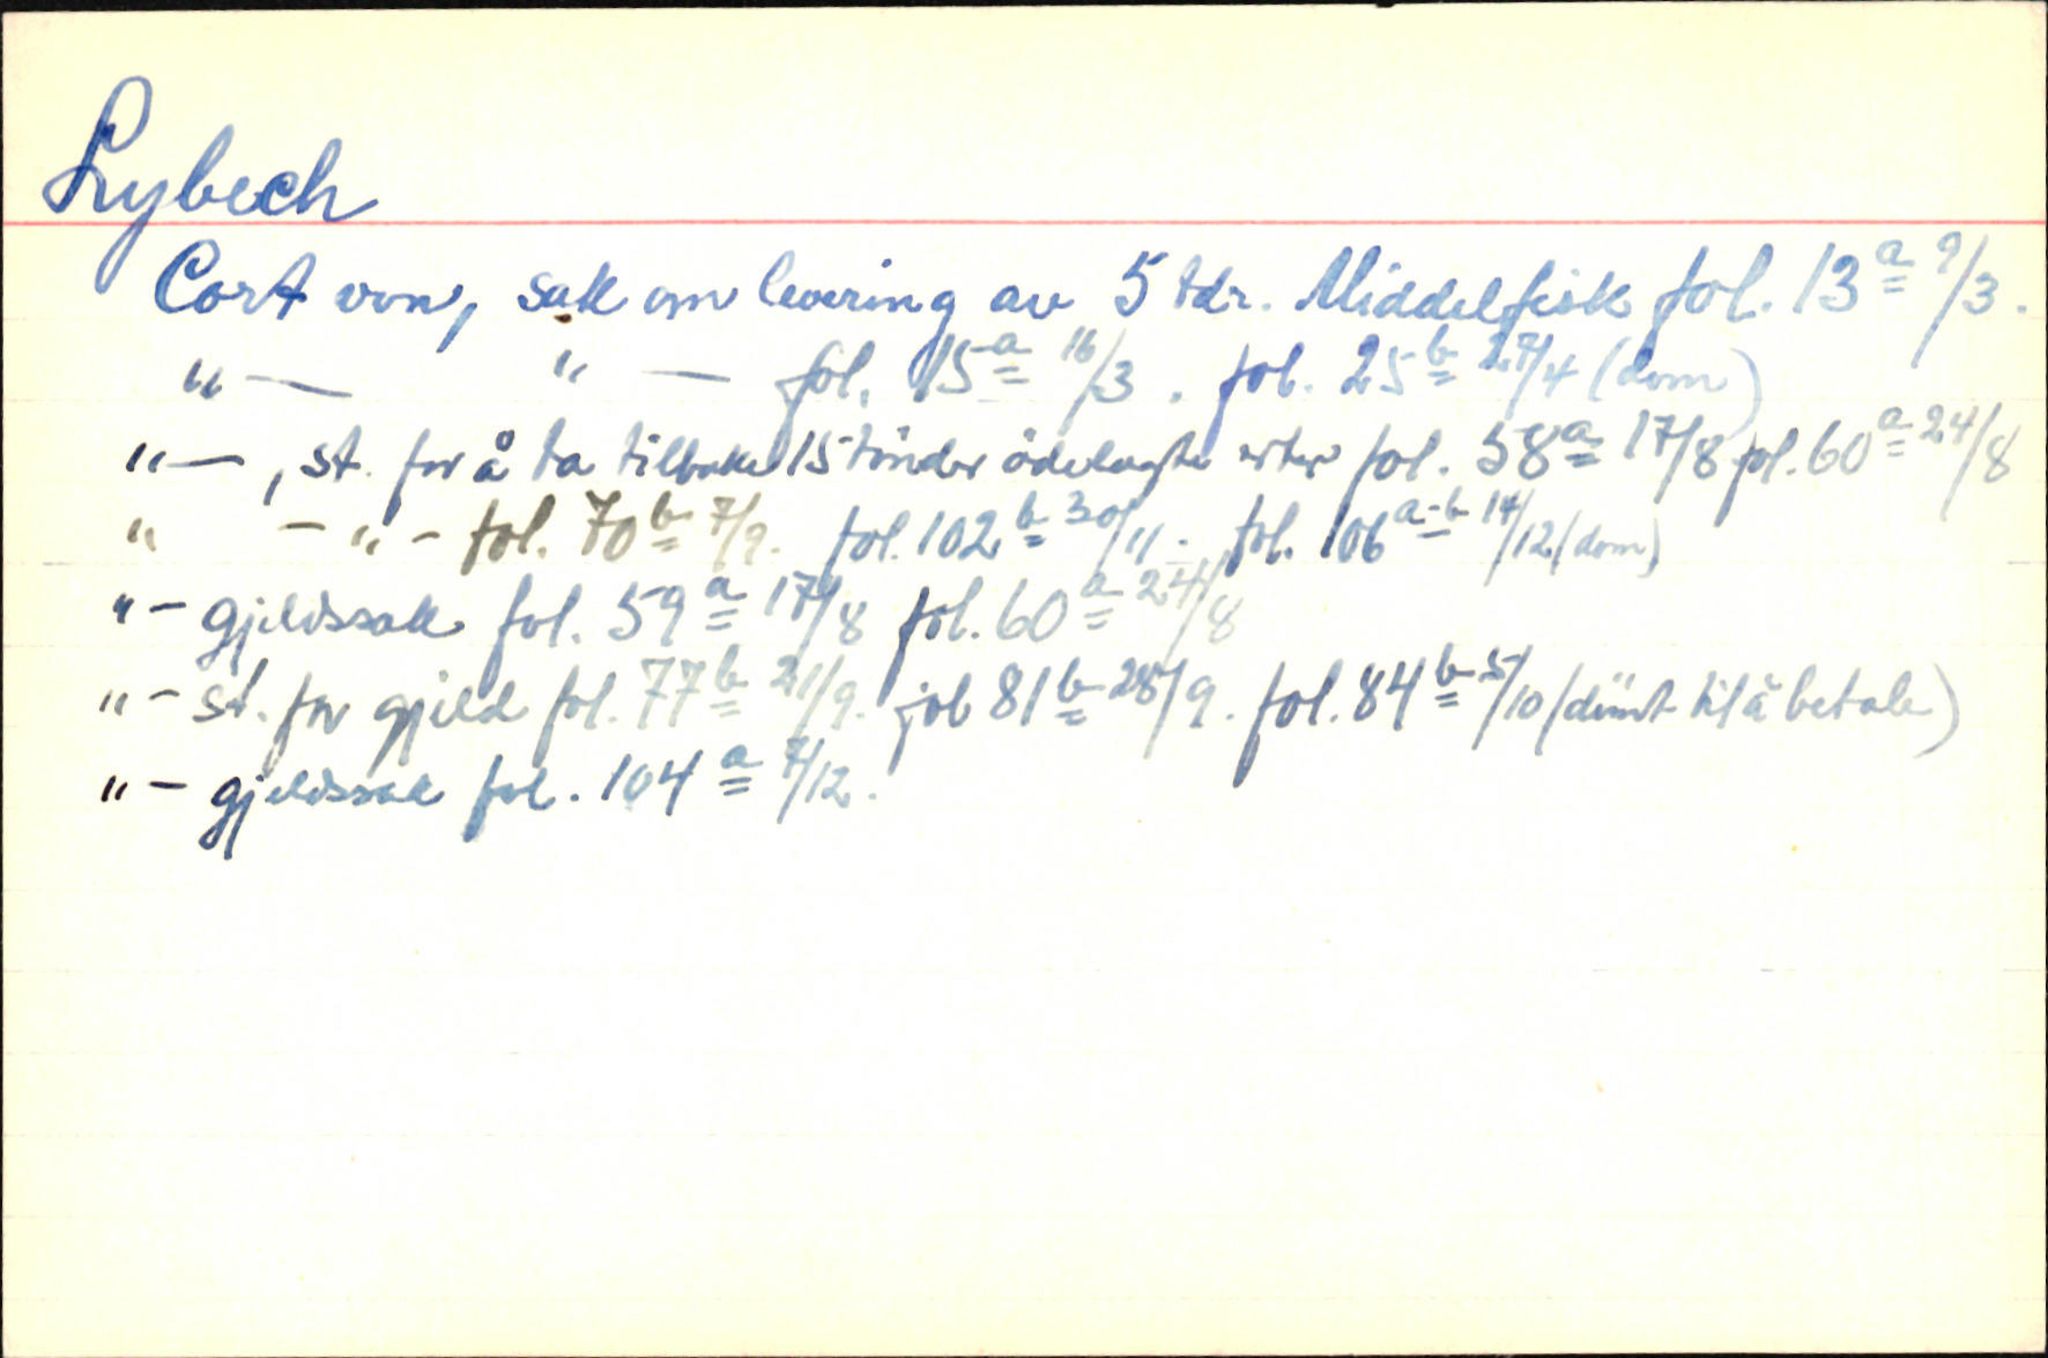 Lybech
Cort von, sak om levering av 5 tdr. Middelfisk fol. 13a 9/3.
"— " — fol. 15a 16/3. fol. 25b 27/4 (dom)
"—, st. for å ta tilbake 15 tönder ödelagte erter fol. 58a 17/8 fol. 60a 24/8
" - " - fol. 70b 7/9. fol. 102b 30/11. fol. 106a-b 14/12 (dom)
" - gjeldssak fol. 59a 17/8 fol. 60a 24/8
" - st. for gjeld fol. 77b 21/9. fol 81b 28/9. fol. 84b 5/10 (dömt til å betale)
" - gjeldssak fol. 104a 7/12.